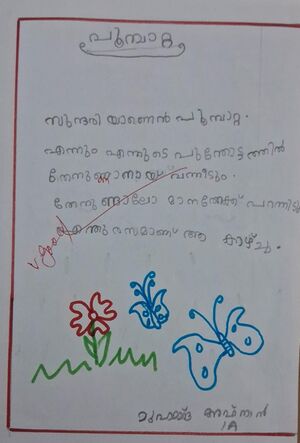 പൂമ്പാറ്റ
സുന്ദരിയാണെൻ പൂമ്പാറ്റ.
എന്നും എന്നുടെ പൂന്തോട്ടത്തിൽ
തേനുണ്ണാനായ് വന്നീടും.
തേനുണ്ടാലോ മാനത്തേക്ക് പറന്നിടും
എന്തു രസമാണ് ആ കാഴ്ച.
v. good
മുഹമ്മദ് അഫ്നാൻ
1A